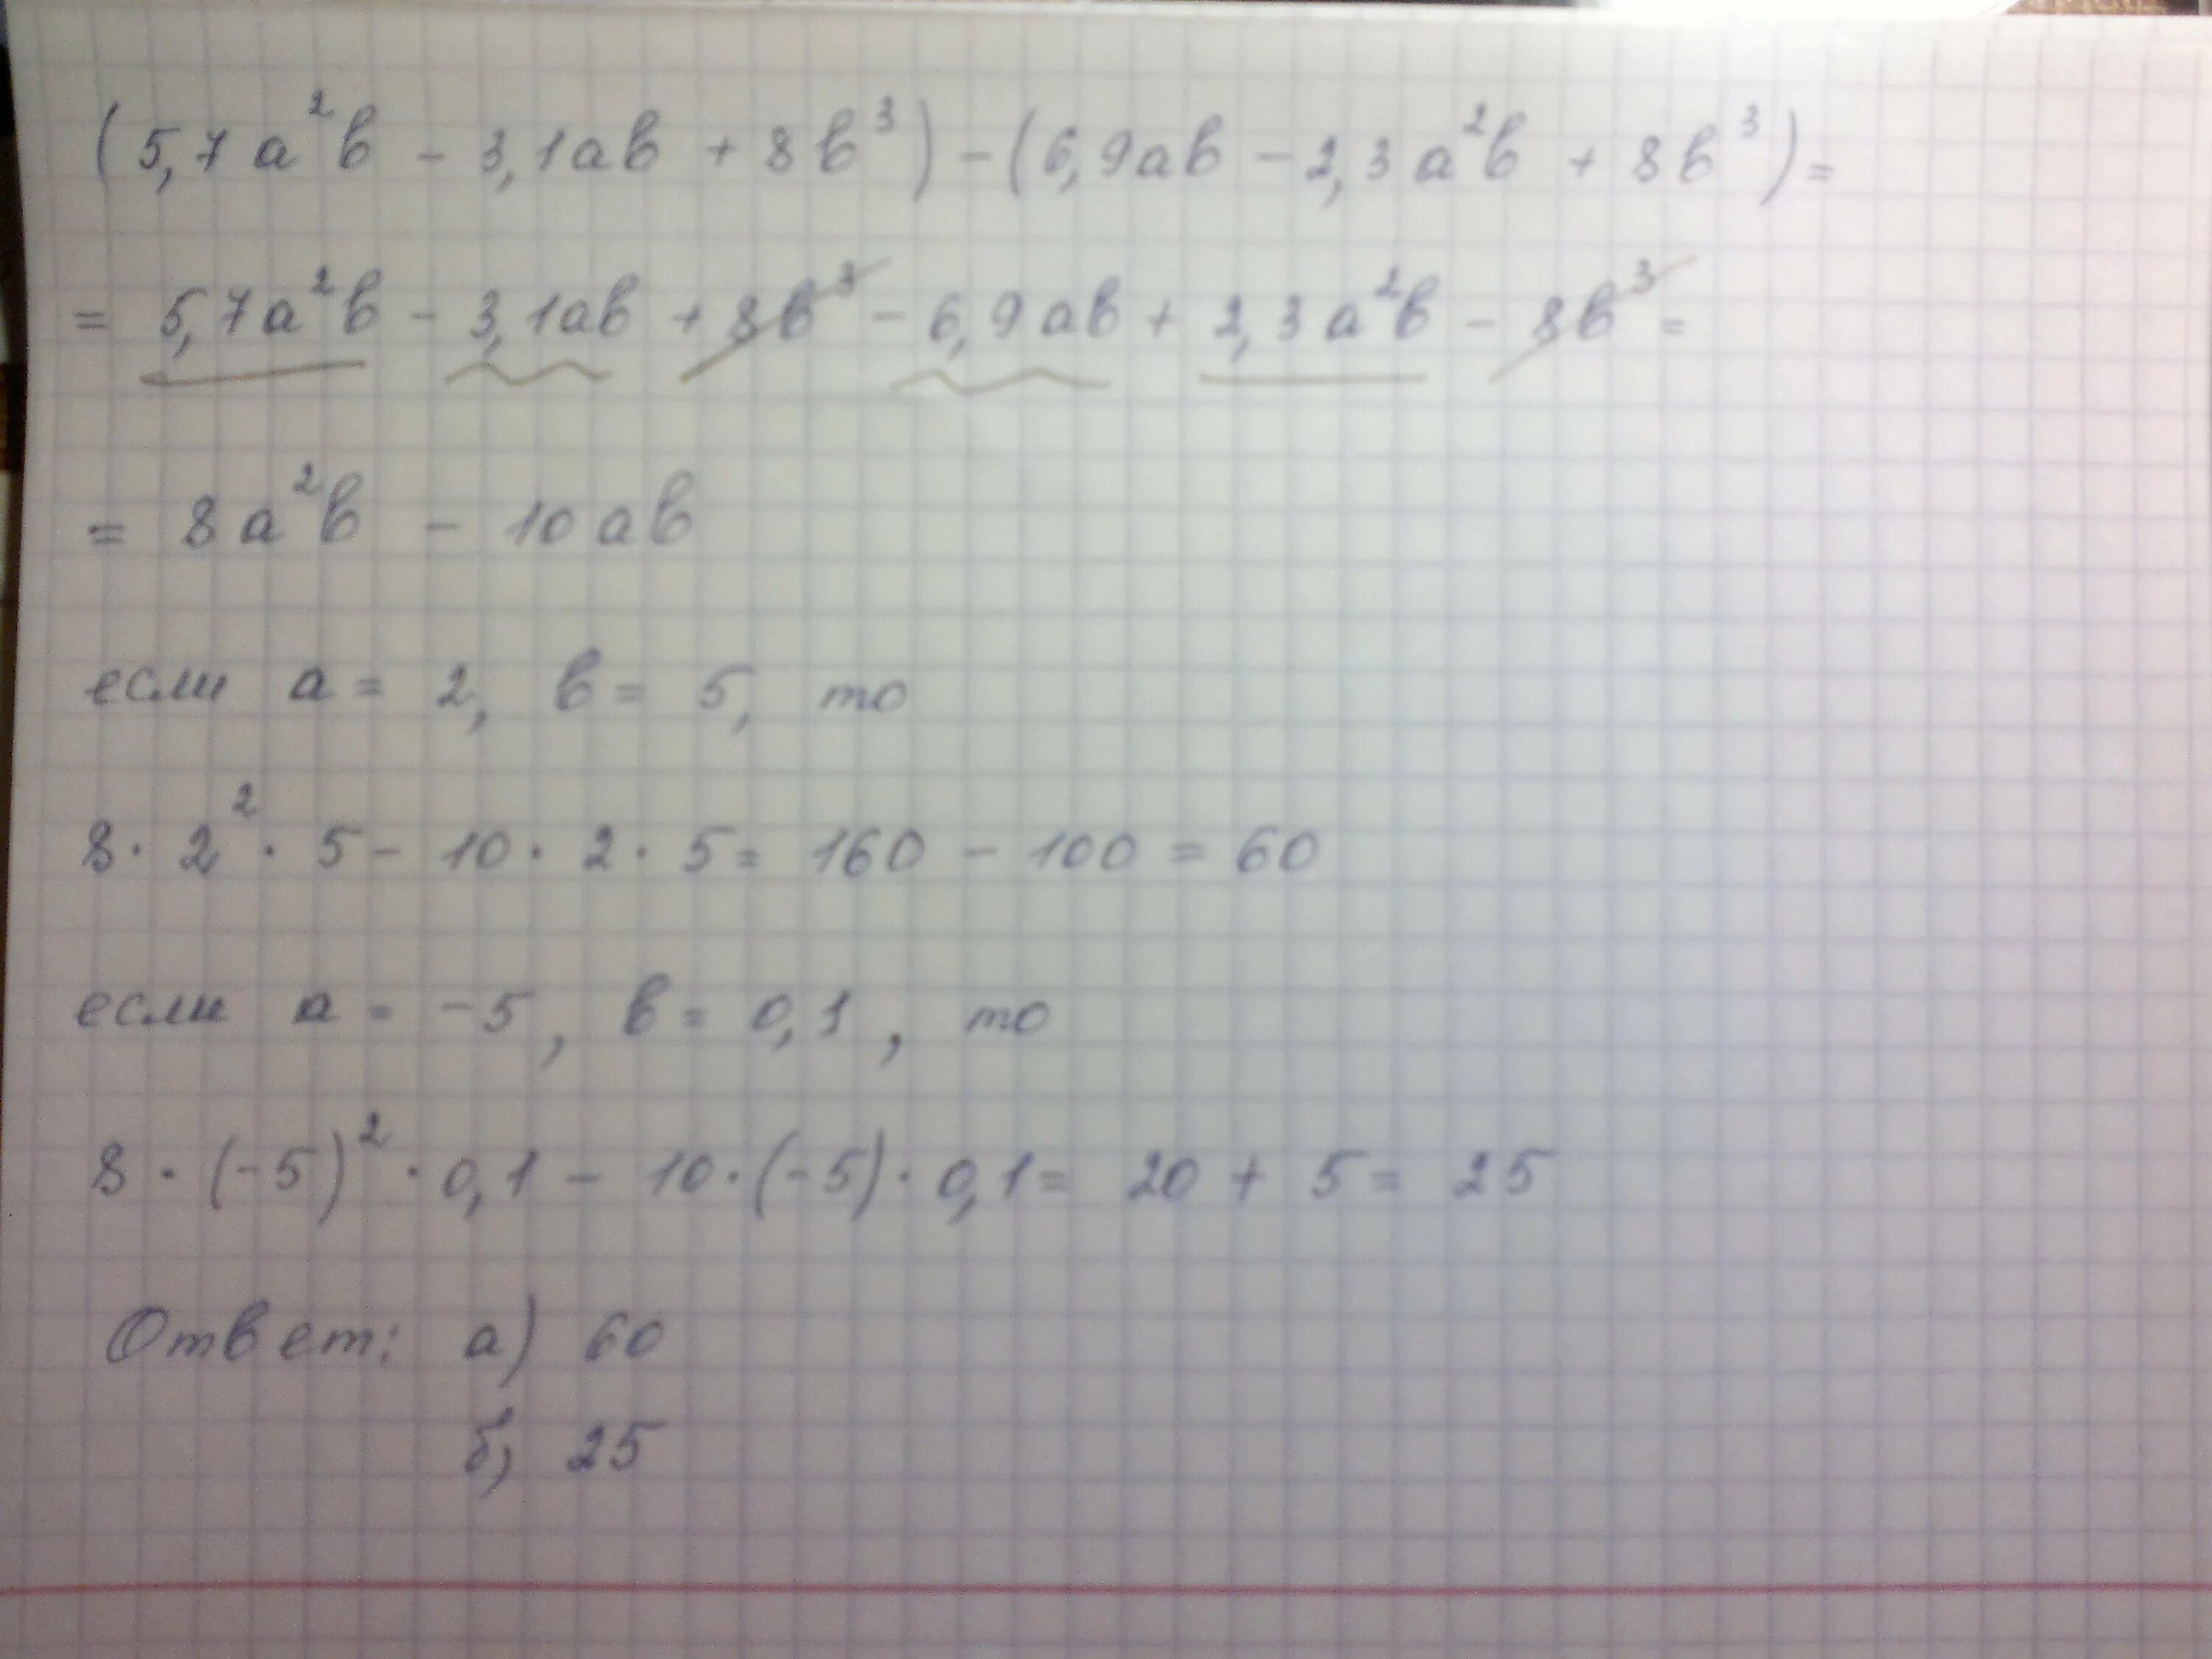 (5,7a²b - 3,1ab + 8b³) - (6,9ab - 2,3a²b + 8b³) =
= 5,7a²b - 3,1ab + 8b³ - 6,9ab + 2,3a²b - 8b³ =
= 8a²b - 10ab
если a = 2, b = 5, то
8 · 2² · 5 - 10 · 2 · 5 = 160 - 100 = 60
если a = -5, b = 0,1, то
8 · (-5)² · 0,1 - 10 · (-5) · 0,1 = 20 + 5 = 25
Ответ: а) 60
б) 25